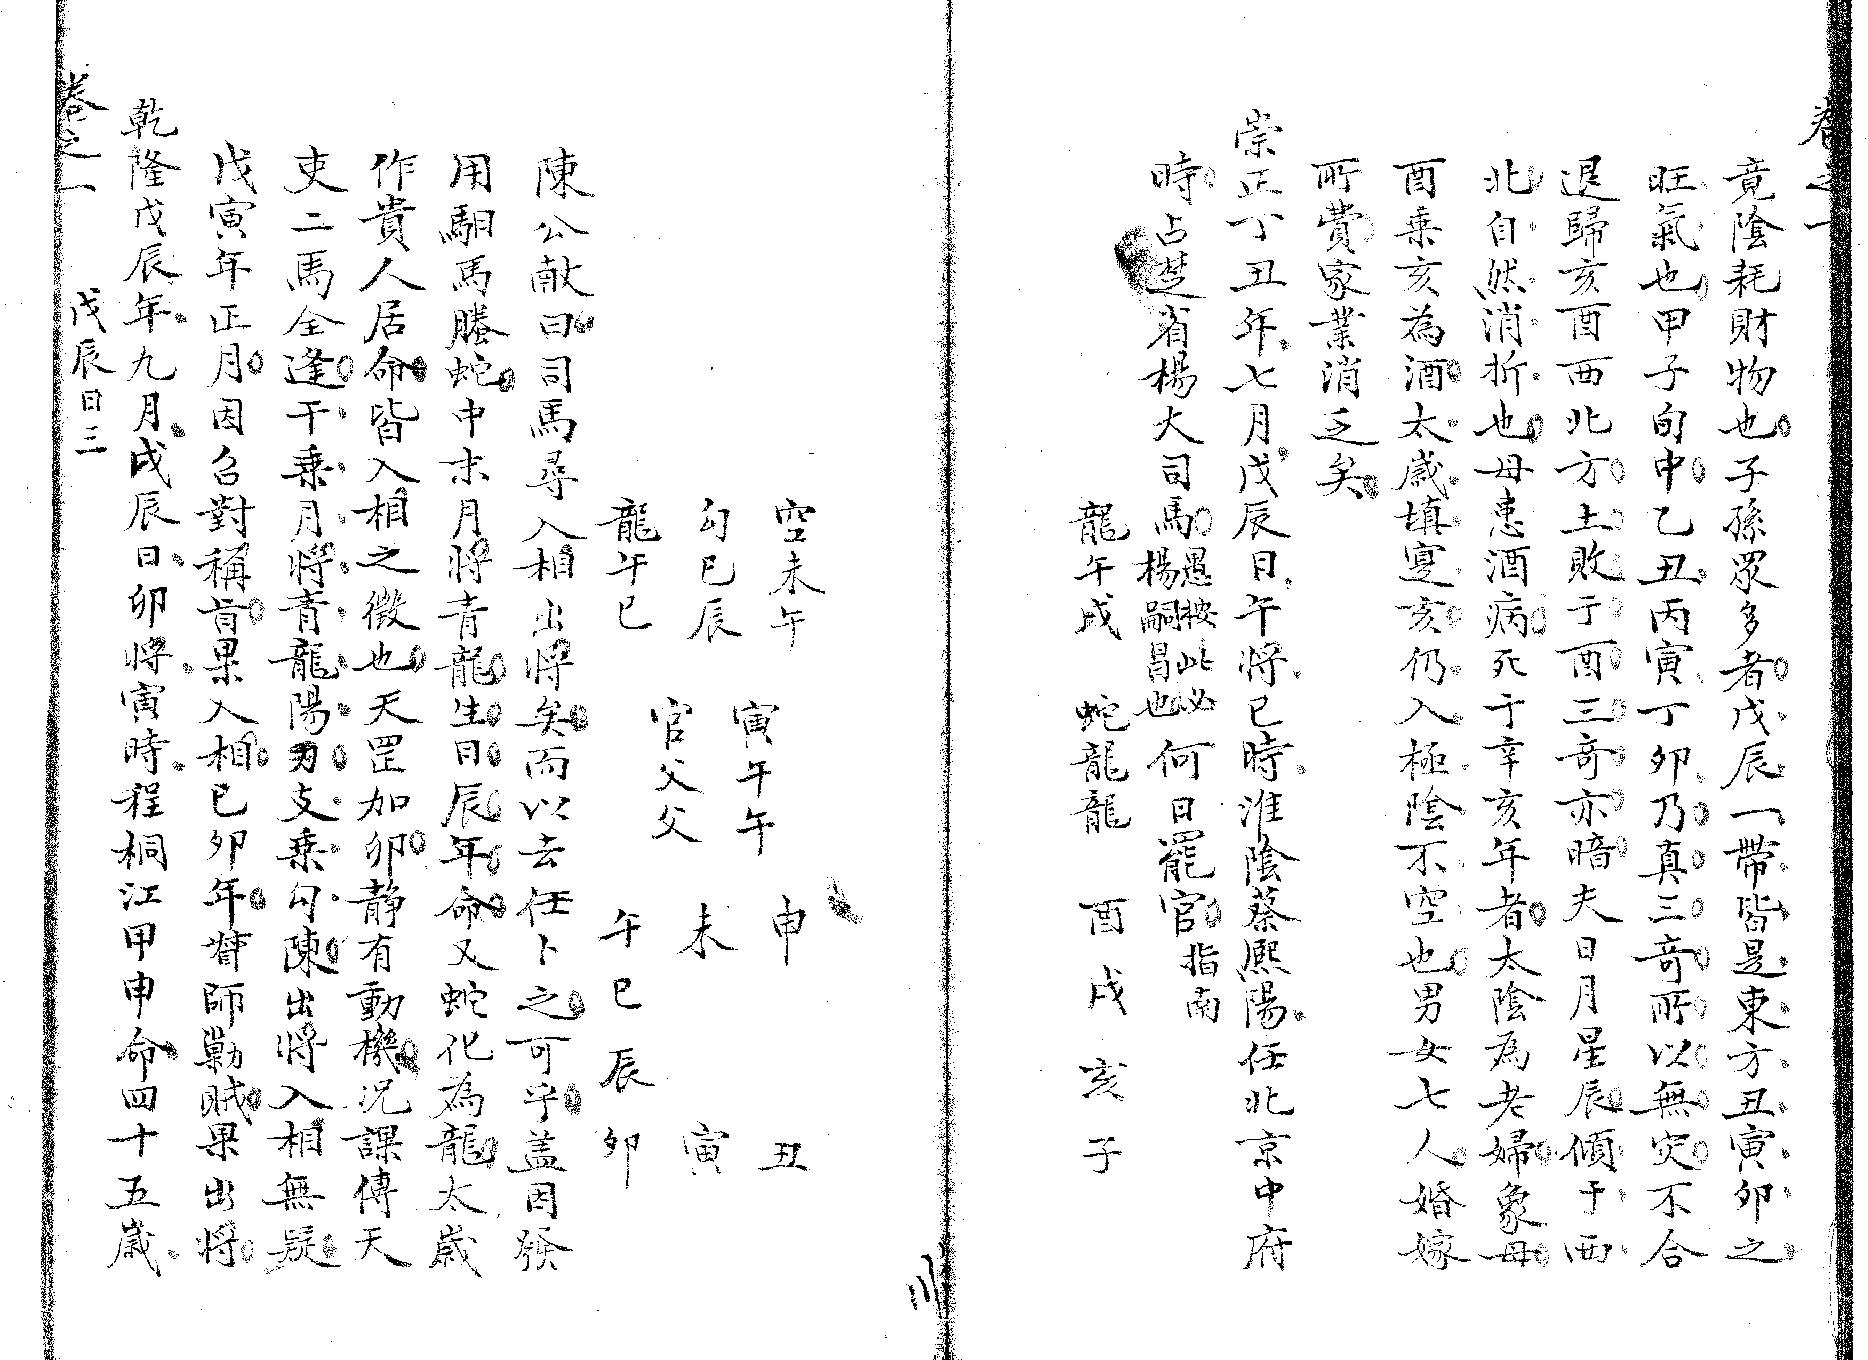 卷之一
竟陰耗財物也子孫眾多者戊辰一帶皆是東方丑寅卯之
旺氣也甲子旬中乙丑丙寅丁卯乃真三奇所以無災不合
退歸亥酉西北方土敗于酉三奇亦暗夫日月星辰傾于西
北自然消折也母患酒病死于辛亥年者太陰為老婦象母
酉乘亥為酒太歲填寔亥仍入極陰不空也男女七人婚嫁
所費家業消乏矣
崇正丁丑年七月戊辰日午將巳時淮陰蔡熈陽任北京中府
時占楚省楊大司馬愚按此必楊嗣昌也何日罷官指南
龍午戌 蛇龍龍 酉戌亥子
空未午 寅午午 申 丑
勾巳辰 官父父 未 寅
龍午巳 午巳辰卯
陳公献曰司馬尋入相出將矣而以去任卜之可乎盖因發
用馹馬螣蛇中末月將青龍生日辰年命又蛇化為龍太歲
作貴人居命皆入相之徵也天罡加卯静有動機况課傳天
吏二馬全逢干乘月將青龍陽刃支乘勾陳出將入相無疑
戊寅年正月因召對稱旨果入相巳卯年督師勦賊果出將
乾隆戊辰年九月戊辰日卯將寅時程桐江甲申命四十五歲
卷之一 戊辰日三